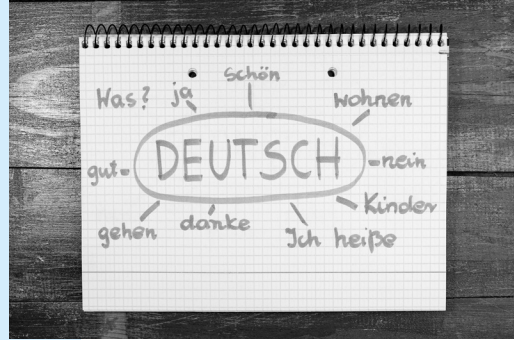 schön
Was? ja wohnen
gut DEUTSCH nein
Kinder
gehen danke Ich heiße